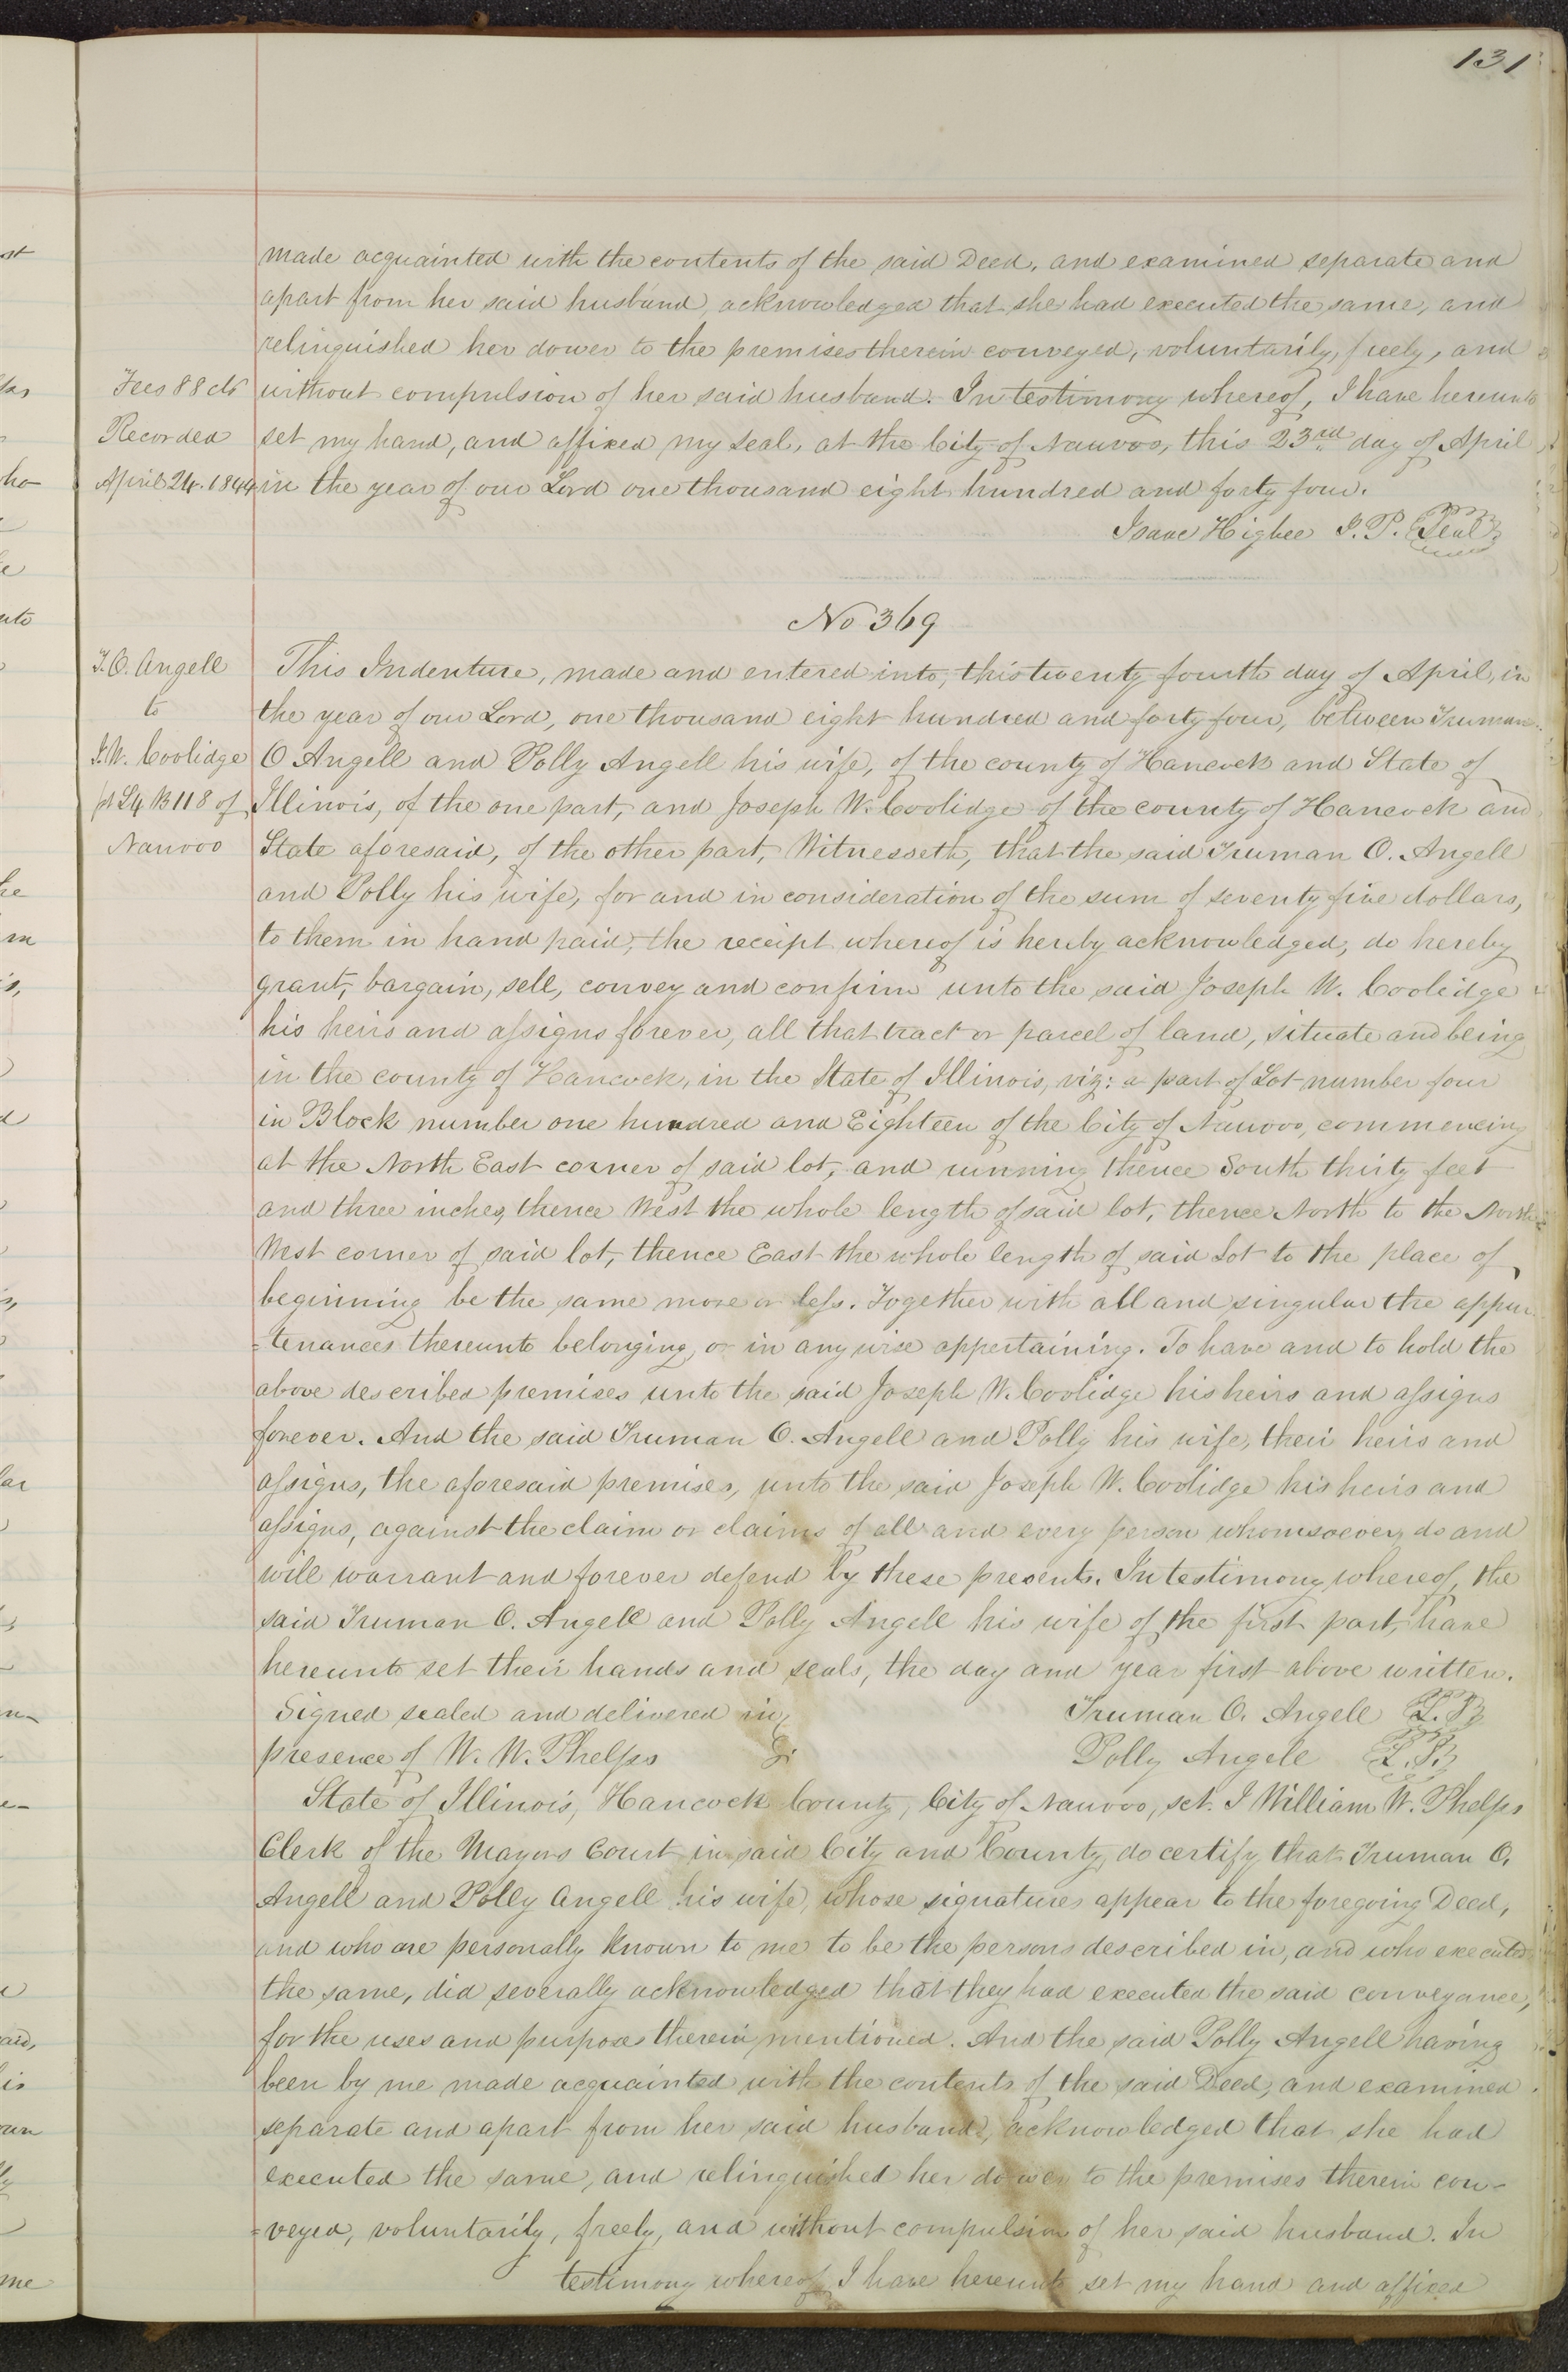 131
made acquainted with the contents of the said Deed, and examined separate and
apart from her said husband, acknowledged that she had executed the same, and
relinquished her dower to the premises therein conveyed, voluntarily, freely, and
Fees 88 cts
without compulsion of her said husband. In testimony whereof, I have hereunto
Recorded
set my hand, and affixed my seal, at the City of Nauvoo, this 23rd day of April
April 24. 1844
in the year of our Lord one thousand eight hundred and forty four.
Isaac Higbee J. P. Seal
No 369
T. O. Angell
This Indenture, made and entered into, this twenty fourth day of April, in
to
the year of our Lord, one thousand eight hundred and forty four, between Truman
J. W. Coolidge
O Angell and Polly Angell his wife, of the county of Hancock and State of
pt L4 B 118 of
Illinois, of the one part, and Joseph W. Coolidge of the county of Hancock and
Nauvoo
State aforesaid, of the other part, Witnesseth, that the said Truman O. Angell
and Polly his wife, for and in consideration of the sum of seventy five dollars,
to them in hand paid, the receipt whereof is hereby acknowledged, do hereby
grant, bargain, sell, convey and confirm unto the said Joseph W. Coolidge
his heirs and assigns forever, all that tract or parcel of land, situate and being
in the county of Hancock, in the State of Illinois, viz: a part of Lot number four
in Block number one hundred and Eighteen of the City of Nauvoo, commencing
at the North East corner of said lot, and running thence South thirty feet
and three inches, thence West the whole length of said lot, thence North to the North
West corner of said lot, thence East the whole length of said Lot to the place of
beginning be the same more or less. Together with all and singular the appur
=tenances thereunto belonging, or in any wise appertaining. To have and to hold the
above described premises unto the said Joseph W. Coolidge his heirs and assigns
forever. And the said Truman O. Angell and Polly his wife, their heirs and
assigns, the aforesaid premises, unto the said Joseph W. Coolidge his heirs and
assigns, against the claim or claims of all and every person whomsoever, do and
will warrant and forever defend by these presents. In testimony whereof, the
said Truman O. Angell and Polly Angell his wife of the first part, have
hereunto set their hands and seals, the day and year first above written.
Signed sealed and delivered in Truman O. Angell L. S.
presence of W. W. Phelps Polly Angell L. S.
State of Illinois, Hancock County, City of Nauvoo, sct. I William W. Phelps
Clerk of the Mayors Court in said City and County, do certify that Truman O.
Angell and Polly Angell his wife, whose signatures appear to the foregoing Deed,
and who are personally known to me to be the persons described in, and who executed
the same, did severally acknowledged that they had executed the said conveyance,
for the uses and purposes therein mentioned. And the said Polly Angell having
been by me made acquainted with the contents of the said Deed, and examined
separate and apart from her said husband, acknowledged that she had
executed the same, and relinquished her dower to the premises therein con-
=veyed, voluntarily, freely, and without compulsion of her said husband. In
testimony whereof I have hereunto set my hand and affixed